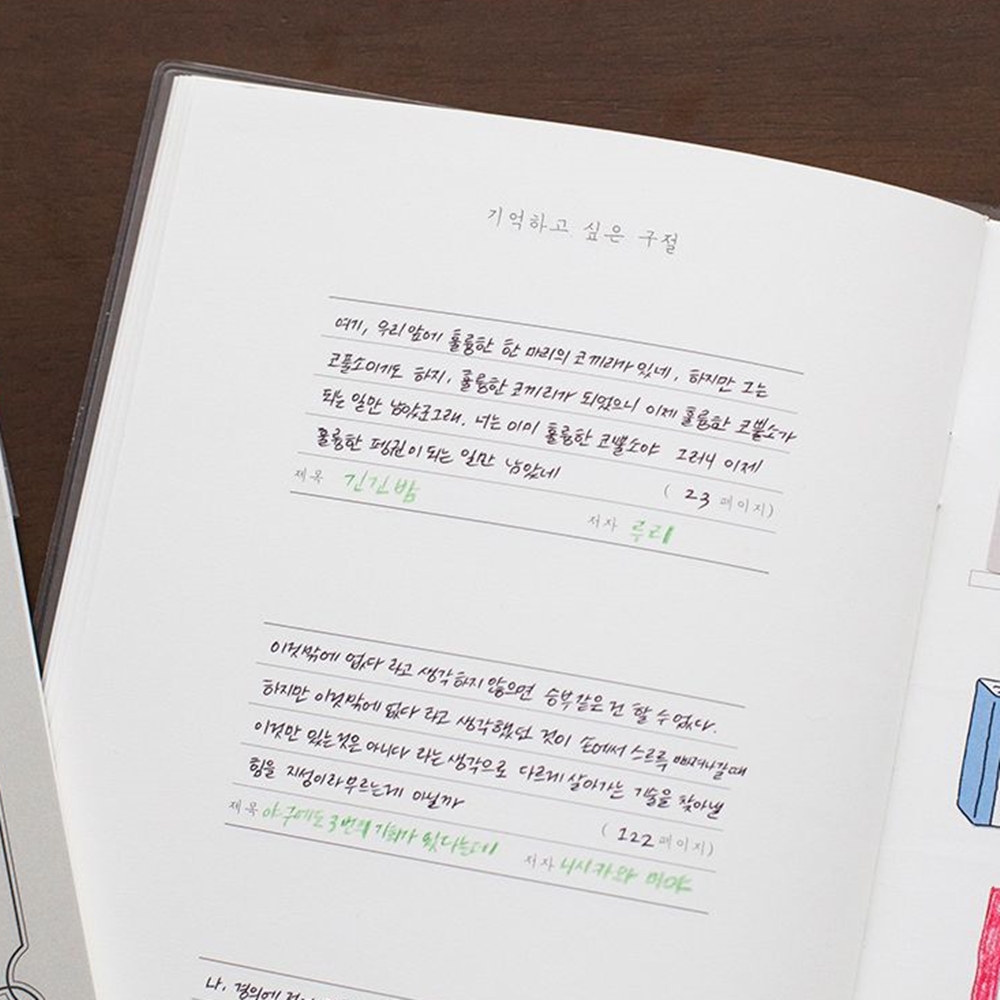 기억하고 싶은 구절
여기, 우리 앞에 훌륭한 한 마리의 코끼리가 있네. 하지만 그는
코뿔소이기도 하지. 훌륭한 코끼리가 되었으니 이제 훌륭한 코뿔소가
되는 일만 남았군그래. 너는 이미 훌륭한 코뿔소야 그러니 이제
훌륭한 펭귄이 되는 일만 남았네
( 23 페이지)
제목 긴긴밤
저자 루리
이것밖에 없다 라고 생각하지 않으면 승부같은 건 할 수 없다.
하지만 이것밖에 없다 라고 생각했던 것이 손에서 스르륵 빠져나갈 때
이것만 있는 것은 아니다 라는 생각으로 다르게 살아가는 기술을 찾아낼
힘을 지성이라 부르는게 아닐까
( 122 페이지)
제목 야구에도 3번의 기회가 있다는데
저자 니시카와 미와
나,